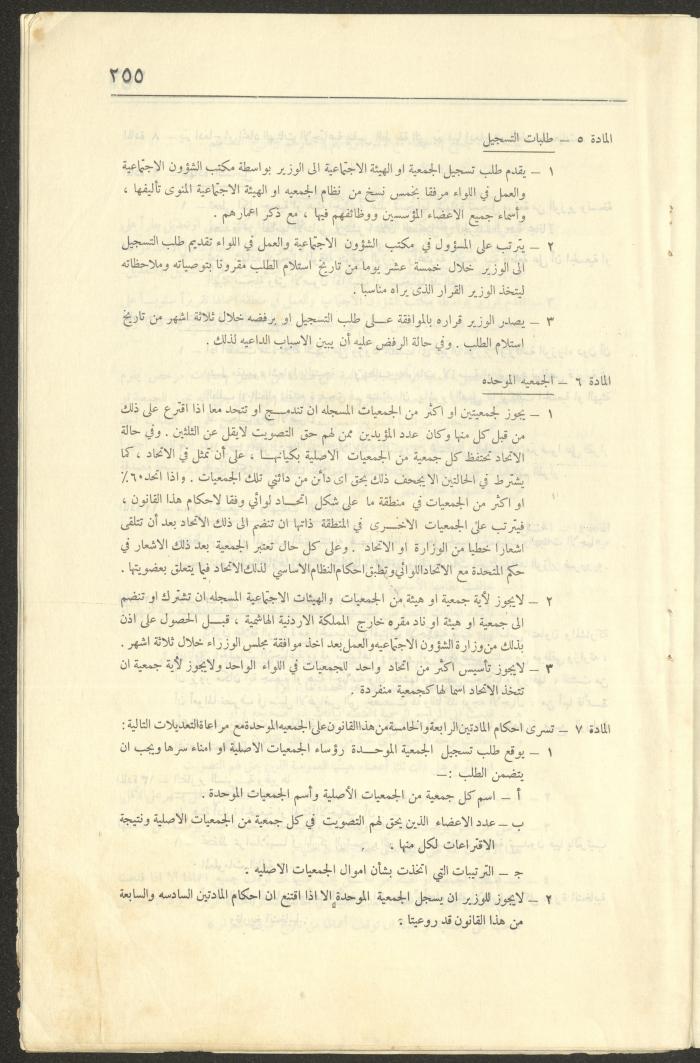 ٢٥٥
المادة ٥ – طلبات التسجيل
١ – يقدم طلب تسجيل الجمعية او الهيئة الاجتماعية الى الوزير بواسطة مكتب الشؤون الاجتماعية
والعمل في اللواء مرفقا بخمس نسخ من نظام الجمعيه او الهيئة الاجتماعية المنوى تأليفها ،
وأسماء جميع الاعضاء المؤسسين ووظائفهم فيها ، مع ذكر اعمارهم .
٢ – يترتب على المسؤول في مكتب الشؤون الاجتماعية والعمل في اللواء تقديم طلب التسجيل
الى الوزير خلال خمسة عشر يوما من تاريخ استلام الطلب مقرونا بتوصياته وملاحظاته
ليتخذ الوزير القرار الذى يراه مناسبا .
٣ – يصدر الوزير قراره بالموافقة عـلـى طلب التسجيل او برفضه خلال ثلاثة اشهر من تاريخ
استلام الطلب . وفي حالة الرفض عليه أن يبين الاسباب الداعيه لذلك .
المادة ٦ – الجمعيه الموحده
١ – يجوز لجمعيتين او اكثر من الجمعيات المسجله ان تندمـج او تتحد معا اذا اقترع على ذلك
من قبل كل منها وكان عدد المؤيدين ممن لهم حق التصويت لايقل عن الثلثين . وفي حالة
الاتحاد تحتفظ كل جمعية من الجمعيات الاصلية بكيانهـا ، على أن تمثل في الاتحاد ، كما
يشترط في الحالتين الايجحف ذلك بحق اى دائن من دائني تلك الجمعيات . واذا اتحد ٦٠٪
او اكثر من الجمعيات في منطقة ما على شكل اتحـاد لوائي وفقا لاحكام هذا القانون ،
فيترتب على الجمعيات الاخـرى في المنطقة ذاتها ان تنضم الى ذلك الاتحاد بعد أن تتلقى
اشعارا خطيا من الوزارة او الاتحاد . وعلى كل حال تعتبر الجمعية بعد ذلك الاشعار في
حكم المتحدة مع الاتحاد اللوائي وتطبق احكام النظام الاساسي لذلك الاتحاد فيما يتعلق بعضويتها .
٢ – لايجوز لأية جمعية او هيئة من الجمعيات والهيئات الاجتماعية المسجله ان تشترك او تنضم
الى جمعية او هيئة او ناد مقره خارج المملكة الاردنية الهاشمية ، قبـل الحصول على اذن
بذلك من وزارة الشؤون الاجتماعيه والعمل بعد اخذ موافقة مجلس الوزراء خلال ثلاثة اشهر .
٣ – لايجوز تأسيس اكثر من اتحاد واحد للجمعيات في اللواء الواحد ولايجوز لأية جمعية ان
تتخذ الاتحاد اسما لها كجمعية منفردة .
المادة ٧ – تسرى احكام المادتين الرابعة والخامسة من هذا القانون على الجمعيه الموحدة مع مراعاة التعديلات التالية :
١ – يوقع طلب تسجيل الجمعية الموحـدة رؤساء الجمعيات الاصلية او امناء سرها ويجب ان
يتضمن الطلب :–
أ – اسم كل جمعية من الجمعيات الأصلية وأسم الجمعيات الموحدة .
ب – عدد الاعضاء الذين يحق لهم التصويت في كل جمعية من الجمعيات الاصلية ونتيجة
الاقتراعات لكل منها .
جـ – الترتيبات التي اتخذت بشأن اموال الجمعيات الاصليه .
٢ – لايجوز للوزير ان يسجل الجمعية الموحدة الا اذا اقتنع ان احكام المادتين السادسه والسابعة
من هذا القانون قد روعيتا .